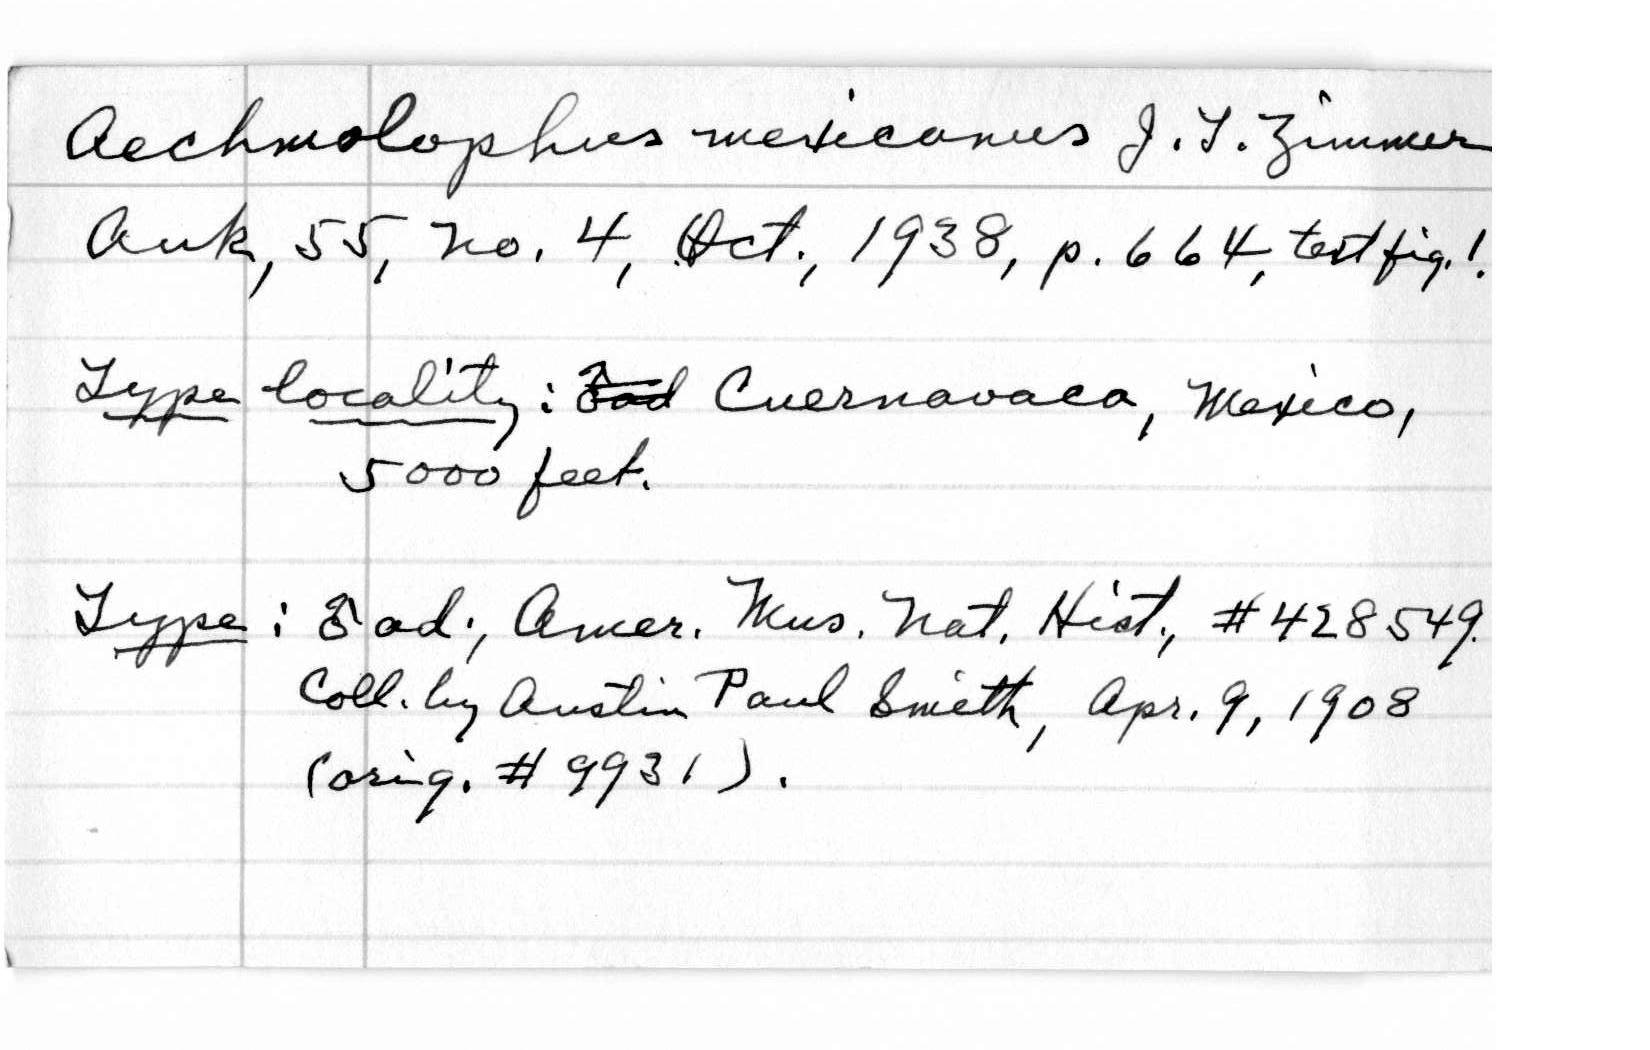 Aechmolophus mexicanus J. T. Zimmer
Auk, 55, no. 4, Oct., 1938, p. 664, text fig. !.
Type locality: Cuernavaca, Mexico,
5000 feet.
Type: ♂ ad., Amer. Mus. Nat. Hist., #428549.
Coll. by Austin Paul Smith, Apr. 9, 1908
(orig. #9931).